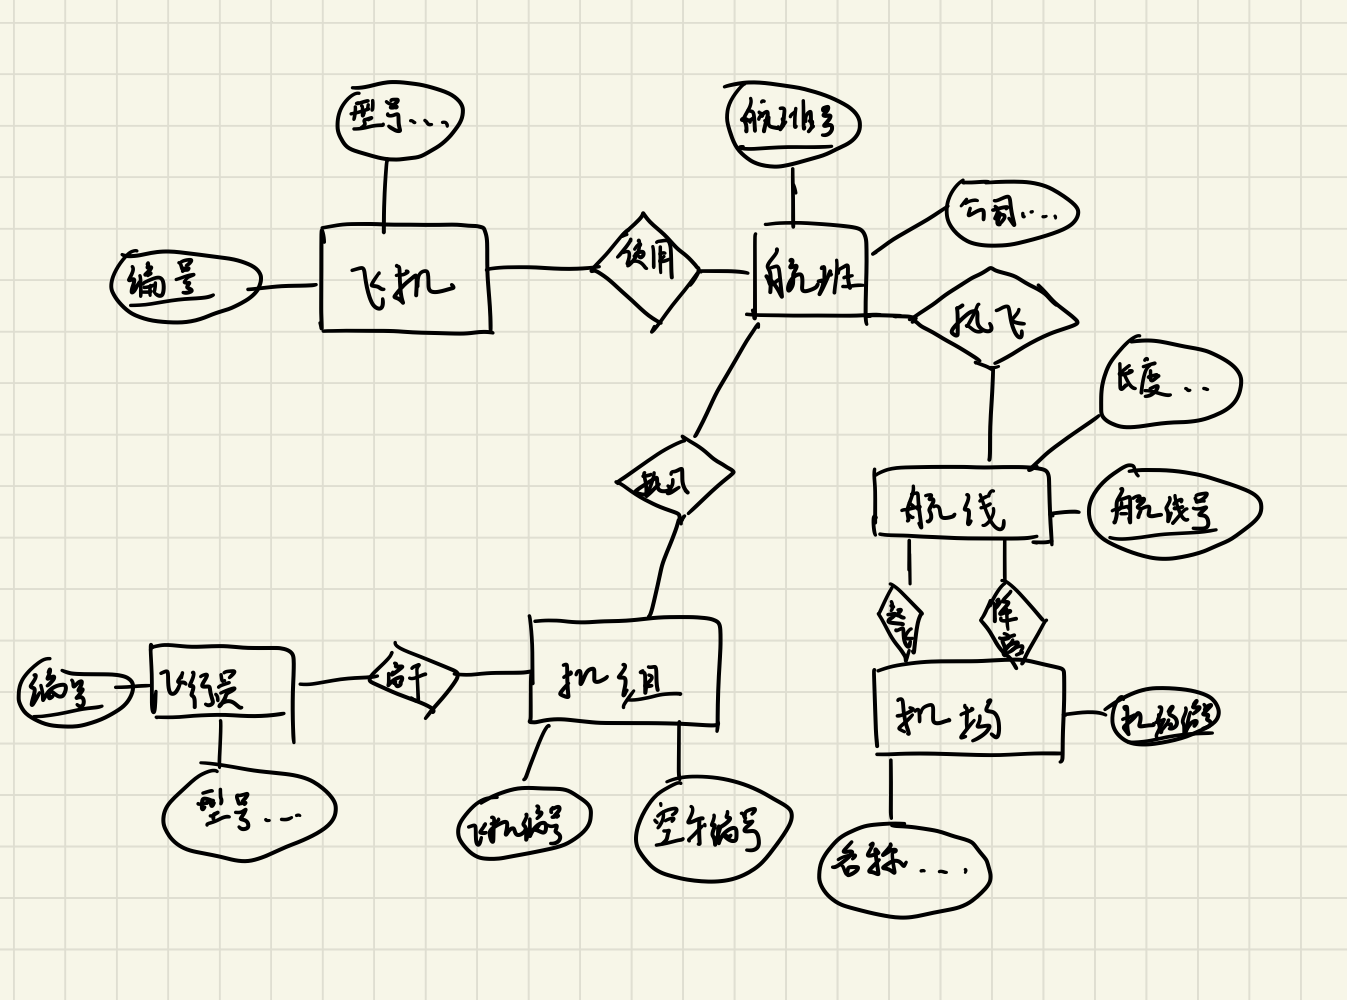 型号....
航班号
公司....
编号
飞机
使用
航班
执飞
长度...
执飞
航线
航线号
起飞
降落
编号
飞行员
属于
机组
机场
机场编号
型号...
飞机编号
空乘编号
名称....